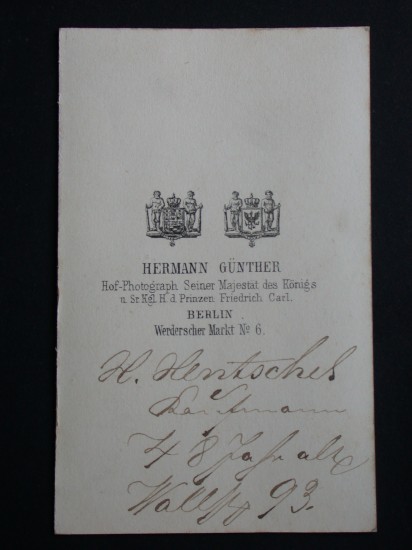 HERMANN GÜNTHER
Hof-Photograph Seiner Majestät des Königs
u. Sr. Kgl. H. d. Prinzen Friedrich Carl.
BERLIN
Werderscher Markt No 6.
H. Hentschel
Kaufmann
48 Jahr alt
Wallstr 93.